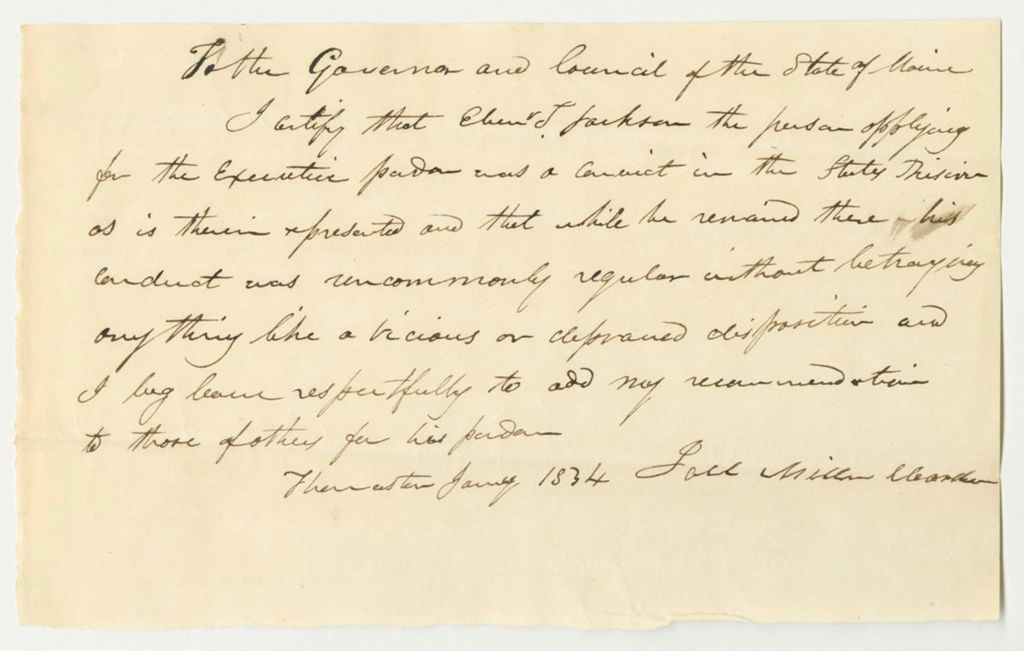 To the Governor and Council of the State of Maine
I certify that Ebenr T. Jackson the person applying
for the Executive pardon was a convict in the States Prison
as is therein represented and that while he remained there his
conduct was uncommonly regular without betraying
anything like a vicious or depraved disposition and
I beg leave respectfully to add my recommendation
to those of others for his pardon
Thomaston Jany 1834 Joel Miller Warden